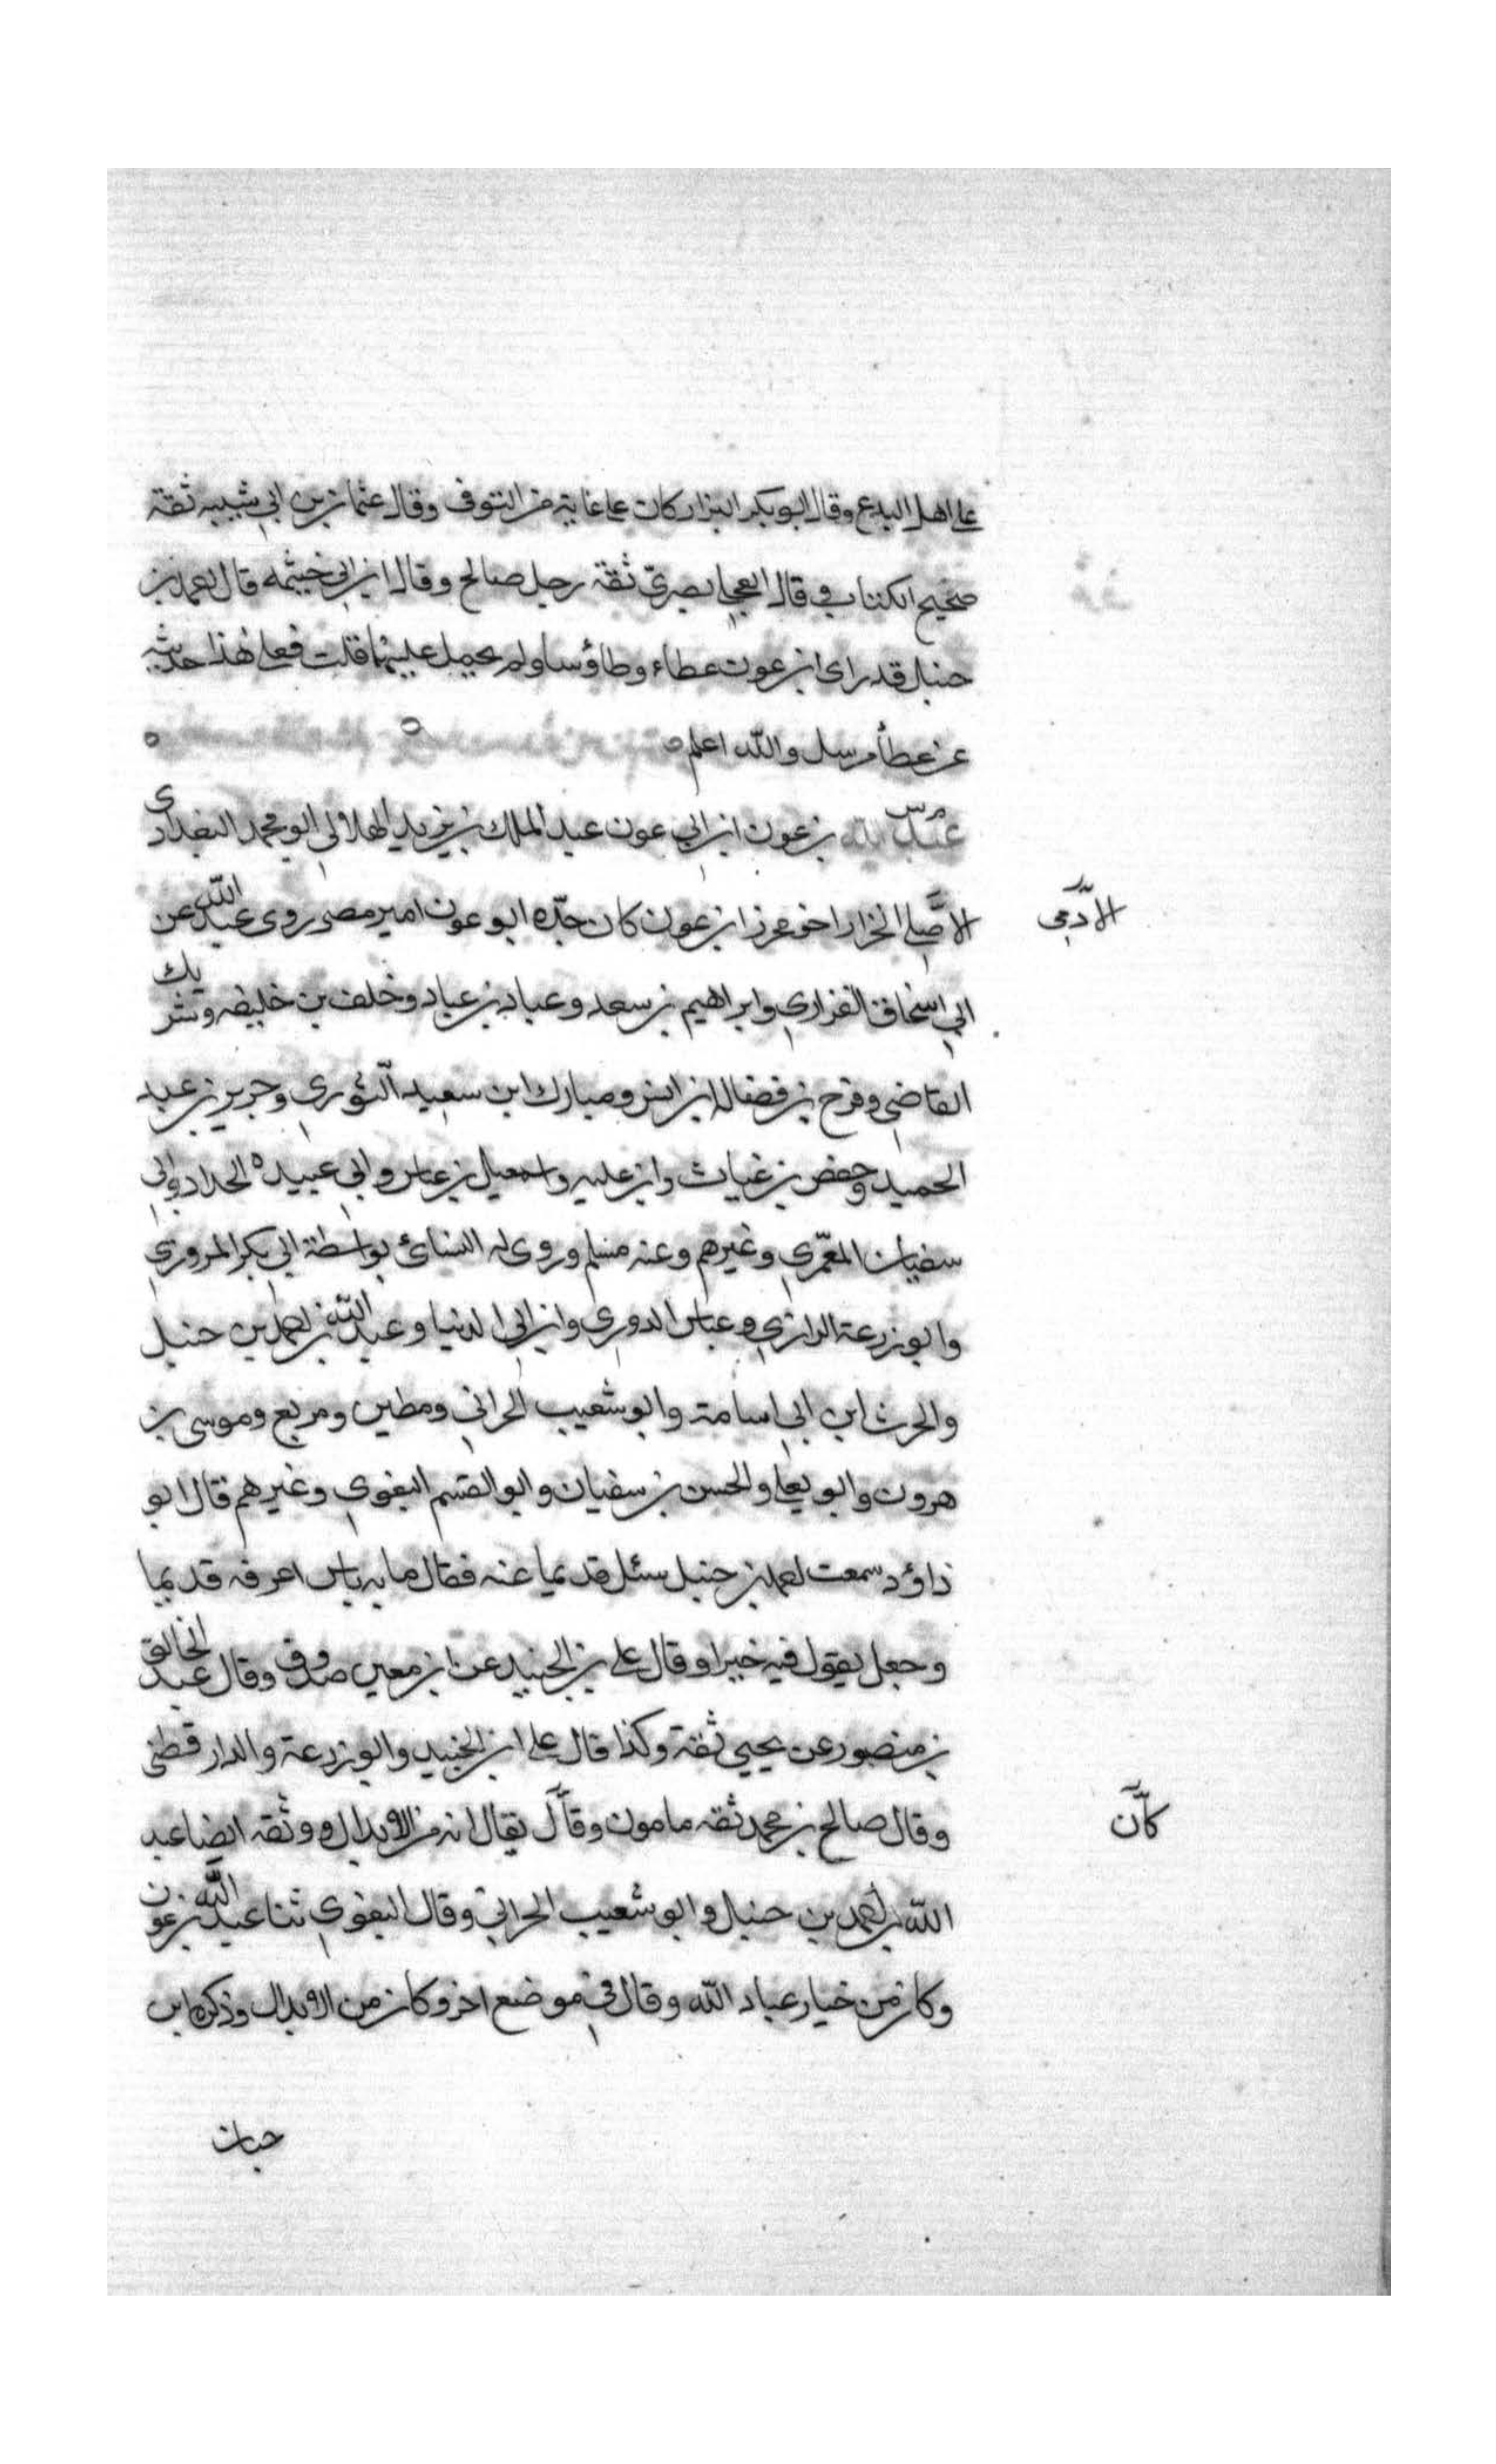 على اهل البدع وقال ابو بكر البزار كان على غاية من التوقى وقال عثمان بن ابي شيبه ثقة
صحيح الكتاب وقال العجلى بصري ثقة رجل صالح وقال ابن ابي خيثمه قال احمد بن
حنبل قد راى ابن عون عطاء وطاؤسا ولم يحمل عليهما قلت فعلى هذا حديثه
عن عطأ مرسل والله اعلم
م س
عبد الله بن عون ابن ابي عون عبد الملك بن يزيد الهلالي ابو محمد البغدادى
الادمى
الاصلي الخزاز اخو محرز ابن عون كان جده ابو عون امير مصر روى عبد الله عن
ابي اسحاق الفزاري وابراهيم بن سعد وعباد بن عباد وخلف بن خليفه وشريك
القاضي وفرج بن فضاله ابن انس ومبارك ابن سعيد الثوري وجرير بن عبد
الحميد وحفص بن غياث وابن عليه واسمعيل بن عياش وابي عبيدة الحداد وابي
سفيان المعمري وغيرهم وعنه مسلم وروى له النسائ بواسطة ابي بكر المروزي
وابو زرعة الرازي وعباس الدوري وابن ابي الدنيا وعبد الله بن احمد بن حنبل
والحرث ابن ابي اسامة وابو شعيب الحراني ومطين ومربع وموسى بن
هرون وابو يعلى والحسن بن سفيان وابو القسم البغوي وغيرهم قال ابو
داؤد سمعت احمد بن حنبل سئل قديما عنه فقال ما به باس اعرفه قديما
وجعل يقول فيه خيرا وقال على بن الجنيد عن ابن معين صدوق وقال عبد الخالق
بن منصور عن يحيى ثقة وكذا قال على ابن الجنيد وابو زرعة والدارقطنى
كان
وقال صالح بن محمد ثقه مامون وقال يقال انه من الابدال ووثقه ايضا عبد
الله بن احمد بن حنبل وابو شعيب الحراني وقال البغوي ثنا عبد الله بن عون
وكان من خيار عباد الله وقال في موضع اخر وكان من الابدال وذكره ابن
حبان